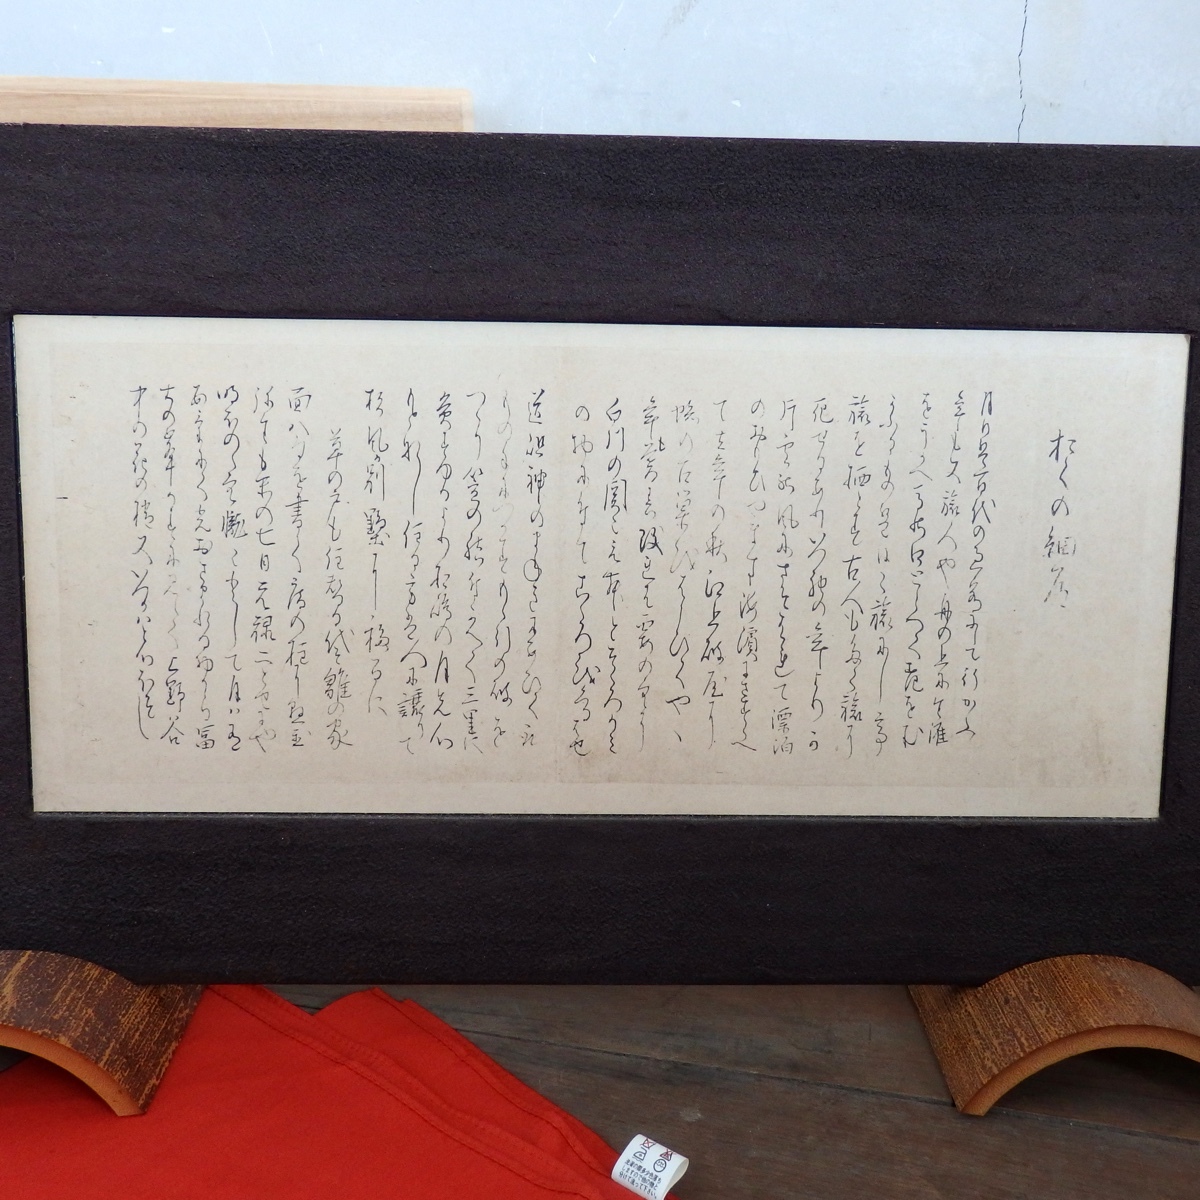 おくの細道
月日は百代の過客にして行かふ
年も又旅人や舟の上に生涯
をうかへ馬の口とらへて老をむ
かふるものは日々旅にして
旅を栖とす古人も多く旅に
死せるありいつれの年よりか
片雲の風にさそはれて漂泊
の思ひやます海濱にさすらへ
て去年の秋江上破屋に
蜘の古巣をはらひてやゝ
年も暮春改れは霞の空に
白川の関こえむとそゝろかみ
の物に付てこゝろを
道祖神のまねきにあひて取
ものも手につかすもゝ引の破を
つゝり笠の緒付かへて三里に
灸すゆるより松嶋の月先心
もとなし住る方は人に譲りて
杉風別墅に移るに
草の戸も住替る代そ雛の家
面八句を書て庵の柱に懸置
弥生も末の七日元禄二とせにや
明ほのゝ空朧々として月は有
あけにて光おさまれる物から冨
士の峯かすかに見えて上野谷
中の花の梢又いつかはと心ほそし